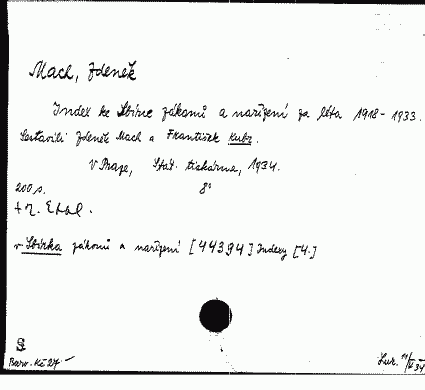 Mach, Zdeněk
Index ke Sbírce zákonů a nařízení za léta 1918-1933.
Sestavili Zdeněk Mach a František Kubr.
V Praze, Stát. tiskárna, 1934.
200 s. 8°
v Sbírka zákonů a nařízení [44394] Indexy [4.]
Kč 27